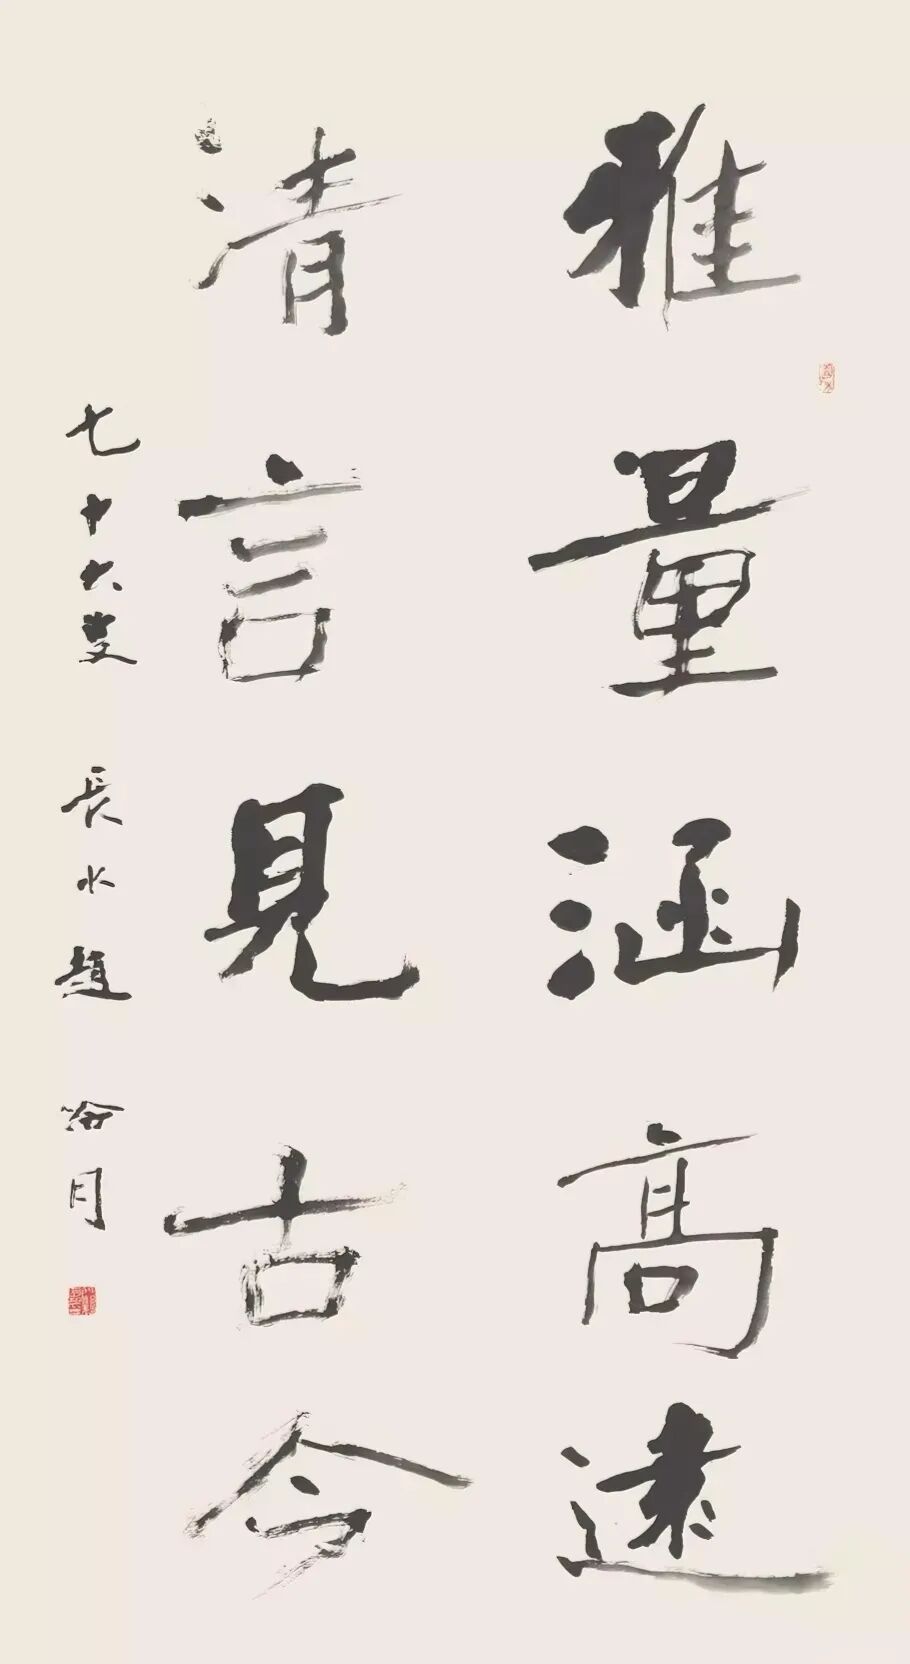 雅量涵高遠
清言見古今
七十六叟 長水 趙 冷月